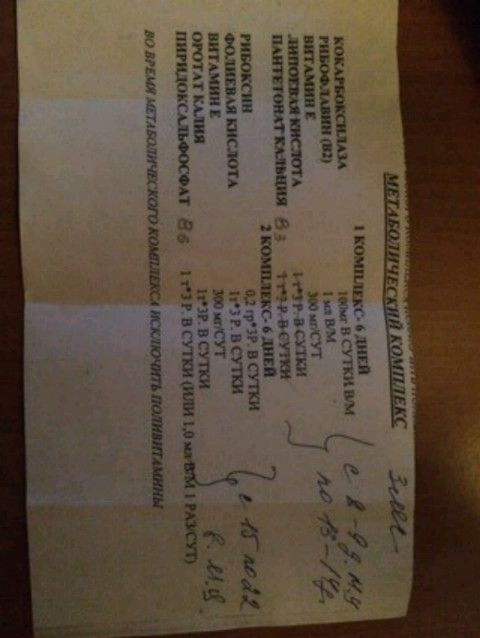 МЕТАБОЛИЧЕСКИЙ КОМПЛЕКС
1 КОМПЛЕКС- 6 ДНЕЙ
КОКАРБОКСИЛАЗА 100мг В СУТКИ В/М
РИБОФЛАВИН (В2) 1 мл В/М
ВИТАМИН Е 300 мг/СУТ
ЛИПОЕВАЯ КИСЛОТА 1 т*3 Р. В СУТКИ
ПАНТЕТОНАТ КАЛЬЦИЯ В3 1 т*3 Р. В СУТКИ
с 8-9 д.м.ц
по 13-14
2 КОМПЛЕКС- 6 ДНЕЙ
РИБОКСИН 0,2 гр*3Р. В СУТКИ
ФОЛИЕВАЯ КИСЛОТА 1т*3 Р. В СУТКИ
ВИТАМИН Е 300 мг/СУТ
ОРОТАТ КАЛИЯ 1т*3Р. В СУТКИ
ПИРИДОКСАЛЬФОСФАТ В6 1 т*3 Р. В СУТКИ (ИЛИ 1,0 мл В/М 1 РАЗ/СУТ)
с 15 по 22
д.м.ц.
ВО ВРЕМЯ МЕТАБОЛИЧЕСКОГО КОМПЛЕКСА ИСКЛЮЧИТЬ ПОЛИВИТАМИНЫ